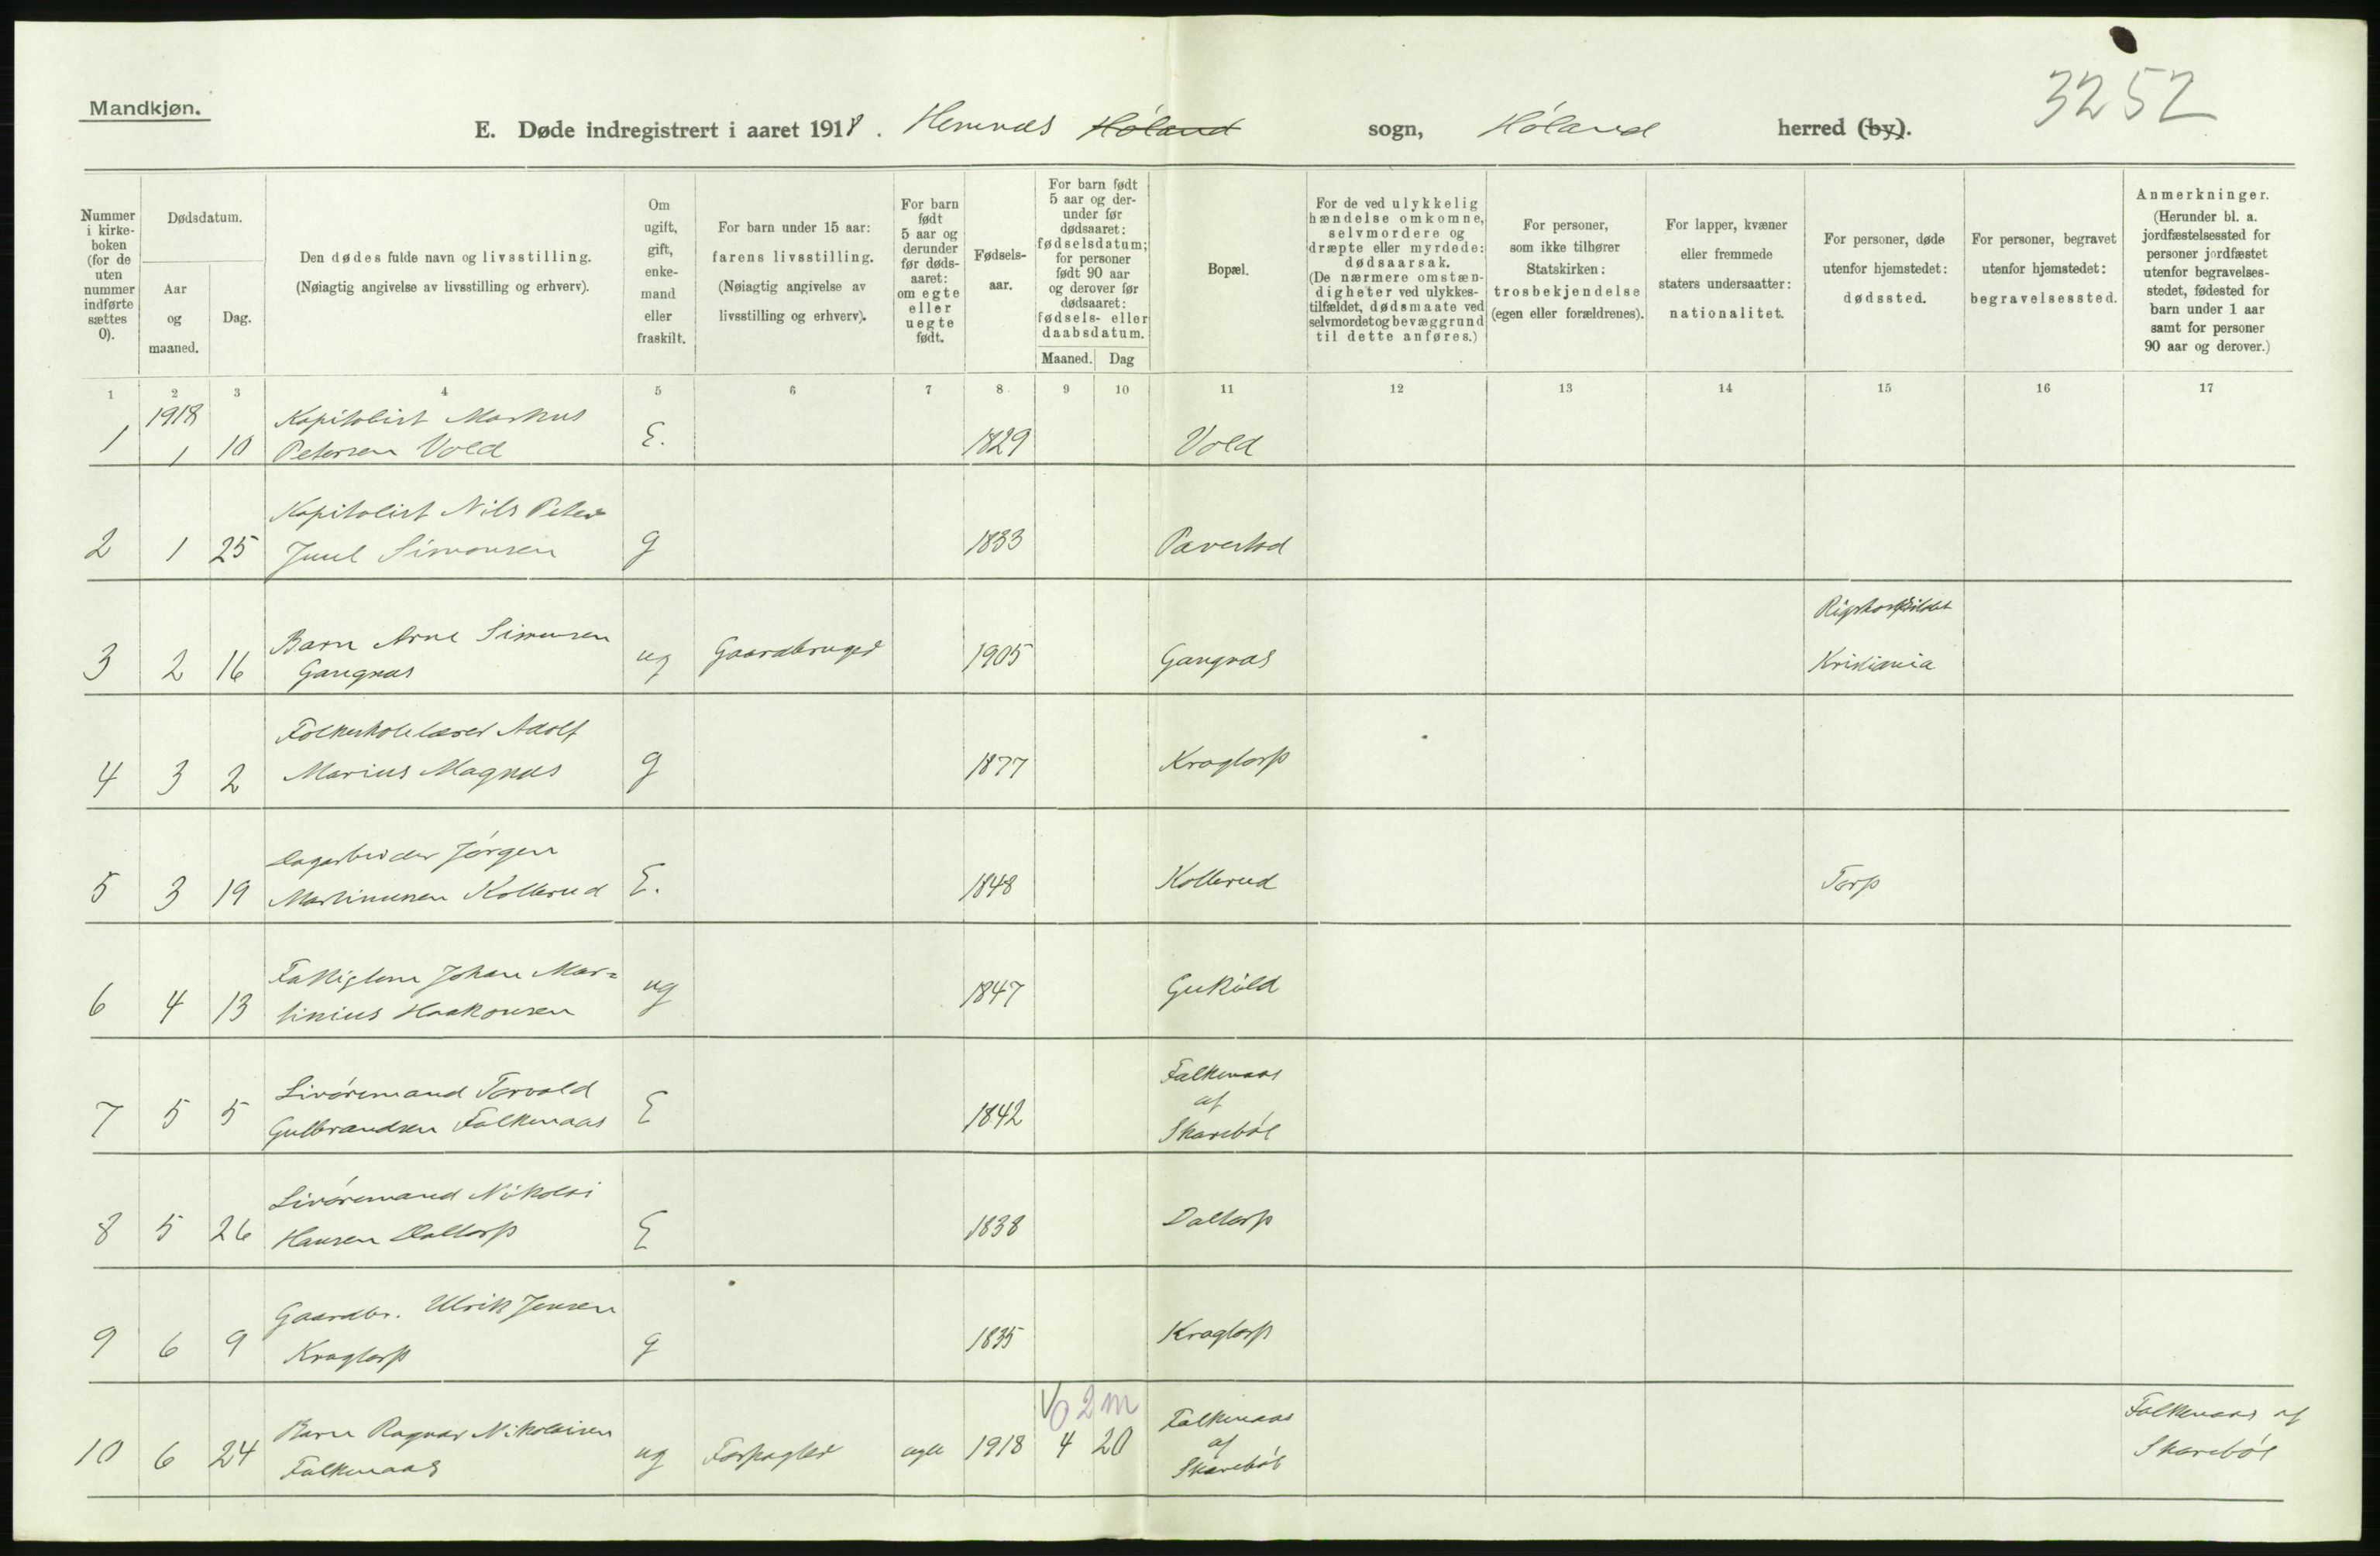 Mandkjøn.
3252
E. Døde indregistrert i aaret 1918. Hemnes Høland sogn, Høland herred (by).
Nummer i kirke-boken (for de uten nummer indførte sættes 0).
Dødsdatum.
Aar og maaned.
Dag.
Den dødes fulde navn og livsstilling.
(Nøiagtig angivelse av livsstilling og erhverv).
Om ugift, gift, enke-mand eller fraskilt.
For barn under 15 aar: farens livsstilling.
(Nøiagtig angivelse av livsstilling og erhverv).
For barn født 5 aar og derunder før døds-aaret: om egte eller uegte født.
Fødsels-aar.
For barn født 5 aar og der-under før dødsaaret: fødselsdatum; for personer født 90 aar og derover før dødsaaret: fødsels- eller daabsdatum.
Maaned. Dag
Bopæl.
For de ved ulykkelig hændelse omkomne, selvmordere og dræpte eller myrdede: dødsaarsak.
(De nærmere omstæn-digheter ved ulykkes-tilfældet, dødsmaate ved selvmordet og bevæggrund til dette anføres.)
For personer, som ikke tilhører Statskirken: trosbekjendelse (egen eller forældrenes).
For lapper, kvæner eller fremmede staters undersaatter: nationalitet.
For personer, døde utenfor hjemstedet: dødssted.
For personer, begravet utenfor hjemstedet: begravelsessted.
Anmerkninger.
(Herunder bl. a. jordfæstelsessted for personer jordfæstet utenfor begravelses-stedet, fødested for barn under 1 aar samt for personer 90 aar og derover.)
1 2 3 4 5 6 7 8 9 10 11 12 13 14 15 16 17
1918 Kapitalist Markus
1 1 10 Petersen Vold E. 1829 Vold
Kapitalist Nils Peter
2 1 25 Juul Simonsen g 1833 Paverstad
Barn Arne Simensen Rigshospitalet
3 2 16 Gangnæs ug Gaardbruger 1905 Gangnæs Kristiania
Folkeskolelærer Adolf
4 3 2 Marius Magnus g 1877 Kragtorp
Dagarbeider Jørgen
5 3 19 Martinusen Kollerud E. 1848 Kollerud Torp
Fattiglem Johan Mar=
6 4 13 tinius Haakonsen ug 1847 Gukild
Livøremand Torvald Falkenaas
af
7 5 5 Gulbrandsen Falkenaas E 1842 Skarebøl
Livøremand Nikolai
8 5 26 Hansen Daltorp E 1838 Daltorp
Gaardbr. Ulrik Jensen
9 6 9 Kragtorp g 1835 Kragtorp
0 2 m
Barn Ragnar Nikolaisen Falkenaas Falkenaas af
10 6 24 Falkenaas ug Forpagter egte 1918 4 20 af Skarebøl Skarebøl